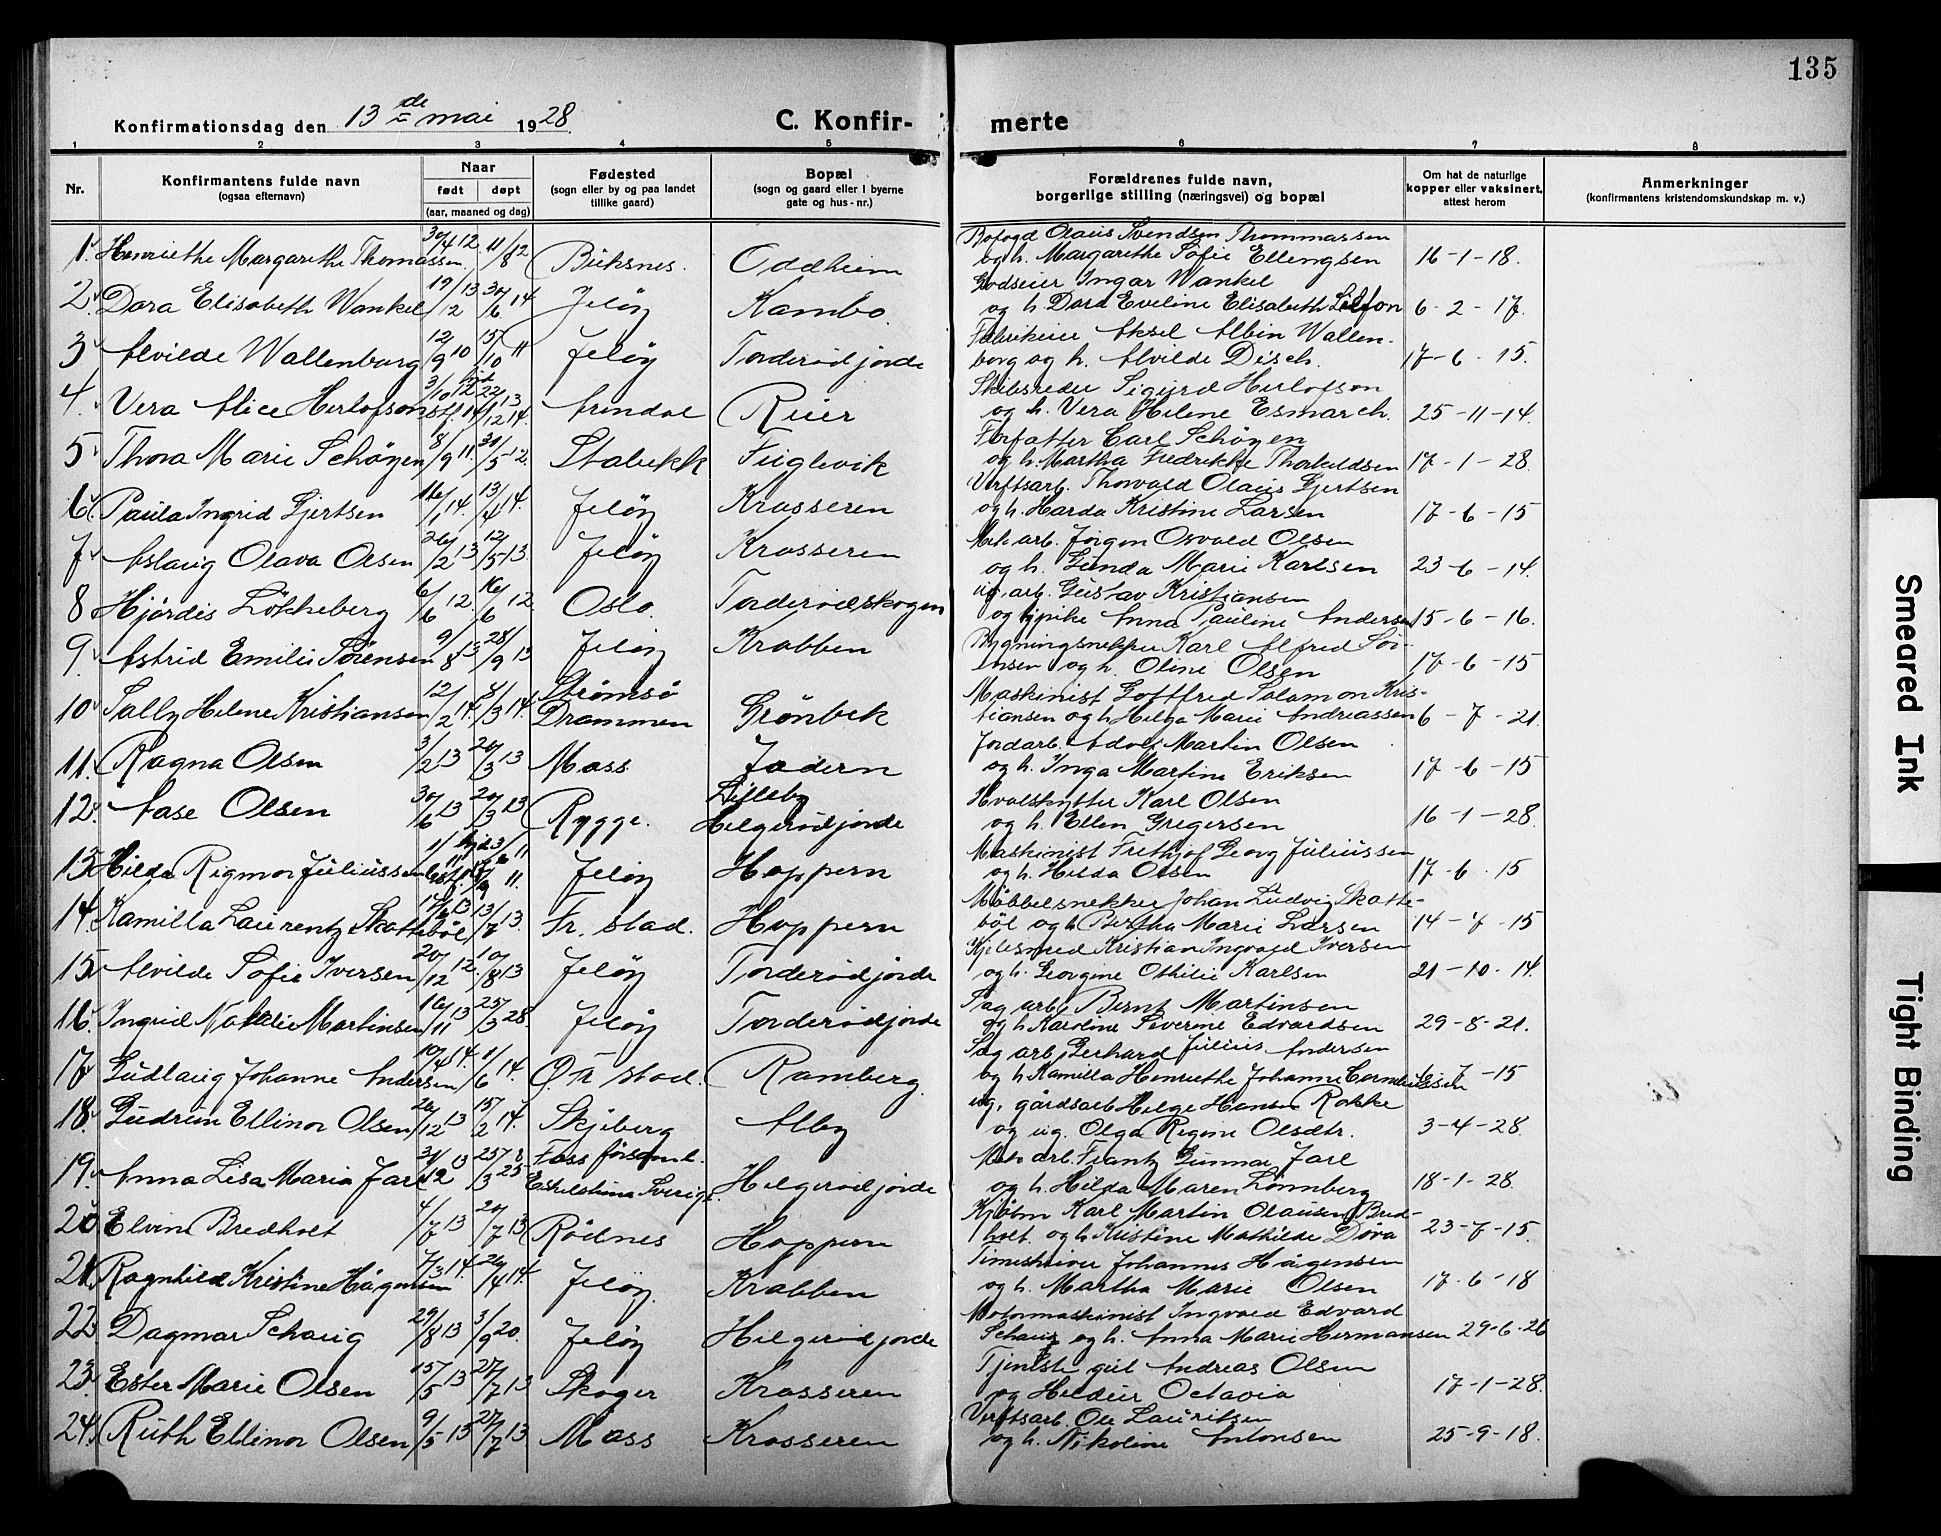 135
Konfirmationsdag den 13de mai 1928.
C. Konfir-merte
1 2 3 4 5 6 7 8
Nr.
Konfirmantens fulde navn
(ogsaa efternavn)
Naar
født døpt
(aar, maaned og dag)
Fødested
(sogn eller by og paa landet
tillike gaard)
Bopæl
(sogn og gaard eller i byerne
gate og hus-nr.)
Forældrenes fulde navn,
borgerlige stilling (næringsvei) og bopæl
Om hat de naturlige
kopper eller vaksinert,
attest herom
Anmerkninger
(konfirmantens kristendomskundskap m. v.)
1. Henriethe Margarethe Thomassen 30/4 12 11/8 12 Buksnes. Oddheim Olaus Svendsen Thommassen
og h. Margarethe Sofie Ellengsen 16-1-18.
2. Dora Elisabeth Wankel 19/12 13 30/6 14 Jeløy Kambo Godseier Ingar Wankel
og h. Dora Eveline Elisabeth 6-2-17.
3 Alvilde Wallenborg 12/9 10 15/10 11 Jeløy Torderødjorde Fabrikeier Aksel Albin Wallen-
borg og h. Alvilde Disch. 17-6-15.
4. Vera Alice Herlofson 3/10 12 22/11 13 Arendal Reier Skibsreder Sigurd Herlofson
og h. Vera Helene Esmarch. 25-11-14.
5 Thora Marie Schøyen 8/9 11 31/5 12. Stabekk Fuglevik Forfatter Carl Schøyen
og h. Martha Fredrikke Thorkildsen 17-1-28.
6. Paula Ingrid Gjertsen 16/1 14. 13/4 14. Jeløy Krosseren Verftsarb. Thorvald Olaus Gjertsen
og h. Harda Kristine Larsen 17-6-15
7 Aslaug Olava Olsen 26/2 13 12/5 13. Jeløy Krosseren arb. Jørgen Osvald Olsen
og h. Gunda Marie Karlsen 23-6-14.
8 Hjørdis Løkkeberg 6/6 12. 16/6 12 Oslo. Torderødskogen ug. arb. Gustav Kristiansen
og pike Anna Pauline Andersen 15-6-16.
9. Astrid Emilie Sørensen 9/8 13 28/9 13 Jeløy Krabben Bygningsnekker Karl Alfred Sør-
ensen og h. Oline Olsen 17-6-15
10 Sally Helene Kristiansen 12/2 14. 8/3 14. Strømsø
Drammen Grønbek Maskinist Gottfred Salamon Kris-
tiansen og h. Helga Marie Andreassen 6-7-21.
11. Ragna Olsen 3/2 13 20/3 13 Moss Jodern Jordarb. Adolf Martin Olsen
og h. Inga Martine Eriksen 17-6-15
12. Aase Olsen 30/6 13 20/3 13 Rygge. Lilleby
Helgerødjorde Hvalskytter Karl Olsen
og h. Ellen Gregersen 16-1-28.
13 Hilda Rigmor Juliussen Jeløy Hoppern Maskinist Frithjof Georg Juliussen
og h. Hilda Olsen 17-6-15
14. Kamilla Laurentze Skattebøl 13/7 13. Fr. stad. Hoppern Møbbelsnekker Johan Ludvig Skatte-
bøl og h. Bertha Marie Larsen 14-7-15
15 Alvilde Sofie Iversen 20/12 12. 10/8 13 Jeløy Torderødjorde Kjelesmed Kristian Ingvald Iversen
og h. Georgine Othilie Karlsen 21-10-14.
16. Ingrid Natalie Martinsen 16/11 13 25/3 28. Jeløy Torderødjorde Sag arb. Bernt Martinsen
og h. Karoline Severine Edvardsen 29-8-21.
17 Gudlaug Johanne Andersen 10/4 14. 1/6 14. Ø. stad. Ramberg. Sag arb. Gerhard Julius Andersen
og h. Kamilla Henriethe Johanne 7-15
18. Gudrun Ellinor Olsen 26/12 13 15/2 14. Skjeberg Alby ug. gårdsarb. Helge Hansen Rokke
og ug. Olga Regine Olsdtr. 3-4-28.
19. Anna Lisa Maria Jarl 31/12 13 25/3 25 Foss församl.
Eskilstuna Sverige. Helgerødjorde arb. Frantz Gunnar Jarl
og h. Hilda Maren Lønnberg 18-1-28.
20 Elvin Bredholt 4/7 13 20/7 13 Rødnes Hoppern Kjøbm Karl Martin Olausen Bred-
holt og h. Kristine Mathilde Døra 23-7-15.
21. Ragnhild Kristine Hågensen 7/3 14. 26/4 14. Jeløy. Krabben Johannes Hågensen
og h. Martha Marie Olsen 17-6-18
22. Dagmar Schaug 29/8 13 3/9 20. Jeløy Helgerødjorde Motormaskinist Ingvald Edvard
Schaug og h. Anna Marie Hermansen 29-6-26
23. Ester Marie Olsen 15/5 13 27/7 13 Skoger Krosseren Andreas Olsen
og Octavia 17-1-28.
24. Ruth Ellinor Olsen 9/5 13 27/7 13 Moss Krosseren Verftsarb. Ole Lauritsen
og h. Nikoline Antonsen 25-9-18.
Smeared Ink
Tight Binding